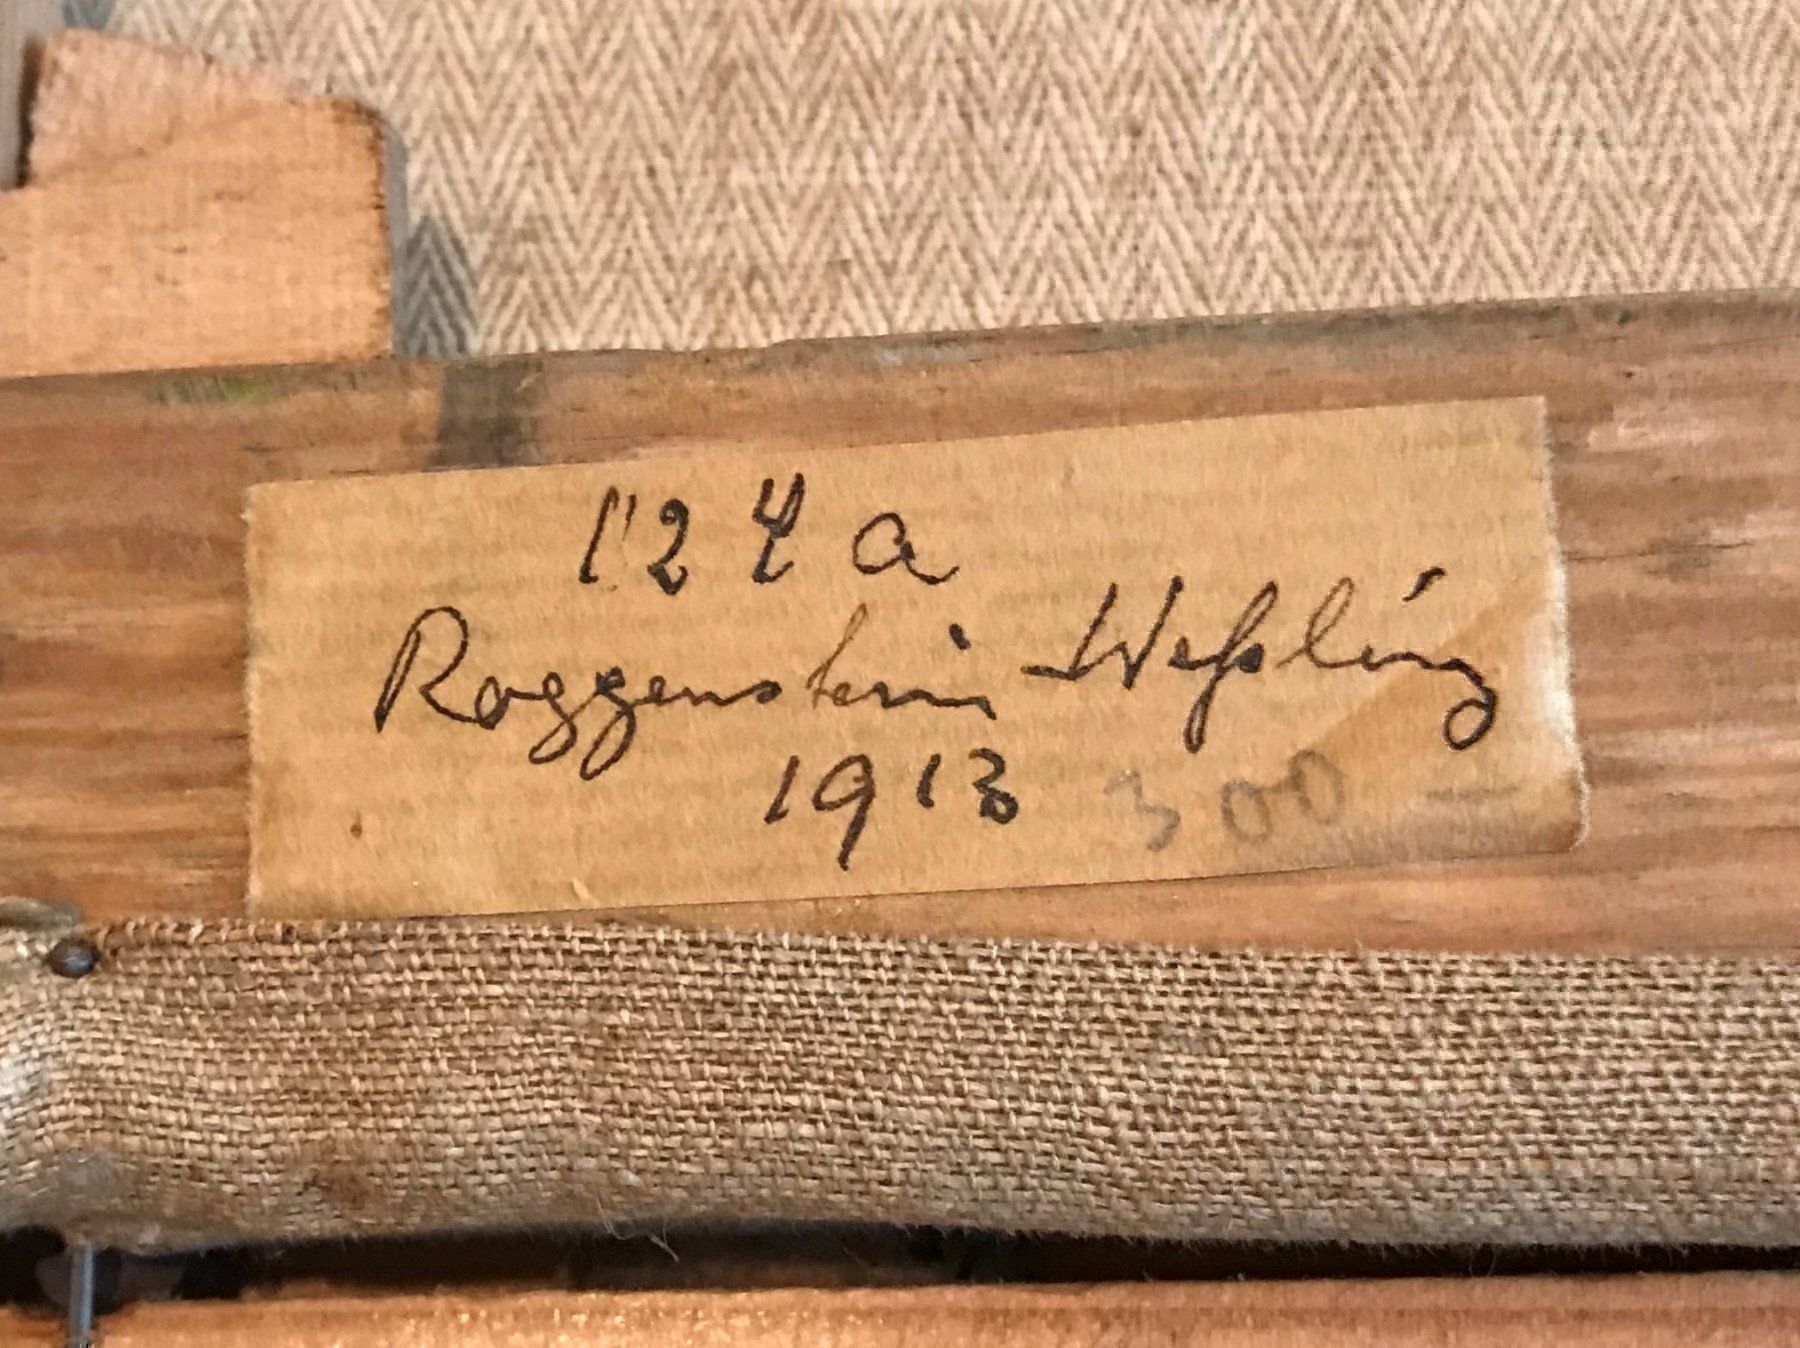 124 a
Roggenstein - Weßling
1913 300 -